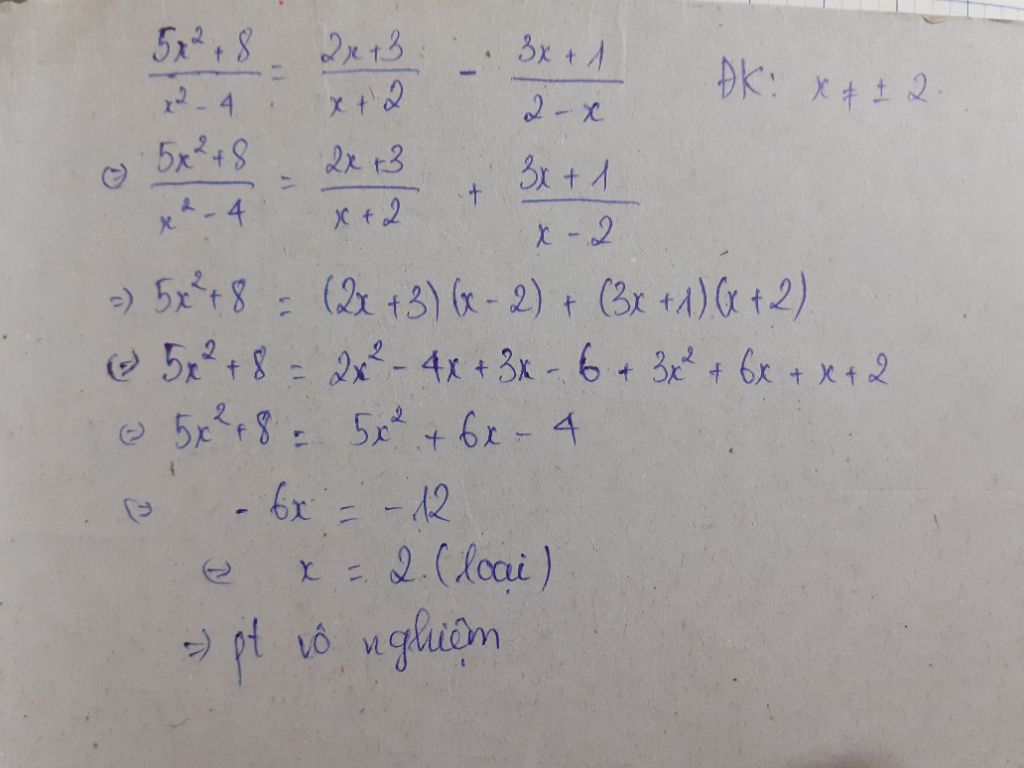 5x² + 8 / x² - 4 = 2x + 3 / x + 2 - 3x + 1 / 2 - x ĐK: x ≠ ± 2.
⇔ 5x² + 8 / x² - 4 = 2x + 3 / x + 2 + 3x + 1 / x - 2
⇒ 5x² + 8 = (2x + 3)(x - 2) + (3x + 1)(x + 2)
⇔ 5x² + 8 = 2x² - 4x + 3x - 6 + 3x² + 6x + x + 2
⇔ 5x² + 8 = 5x² + 6x - 4
⇔ - 6x = - 12
⇔ x = 2. (loại)
⇒ pt vô nghiệm